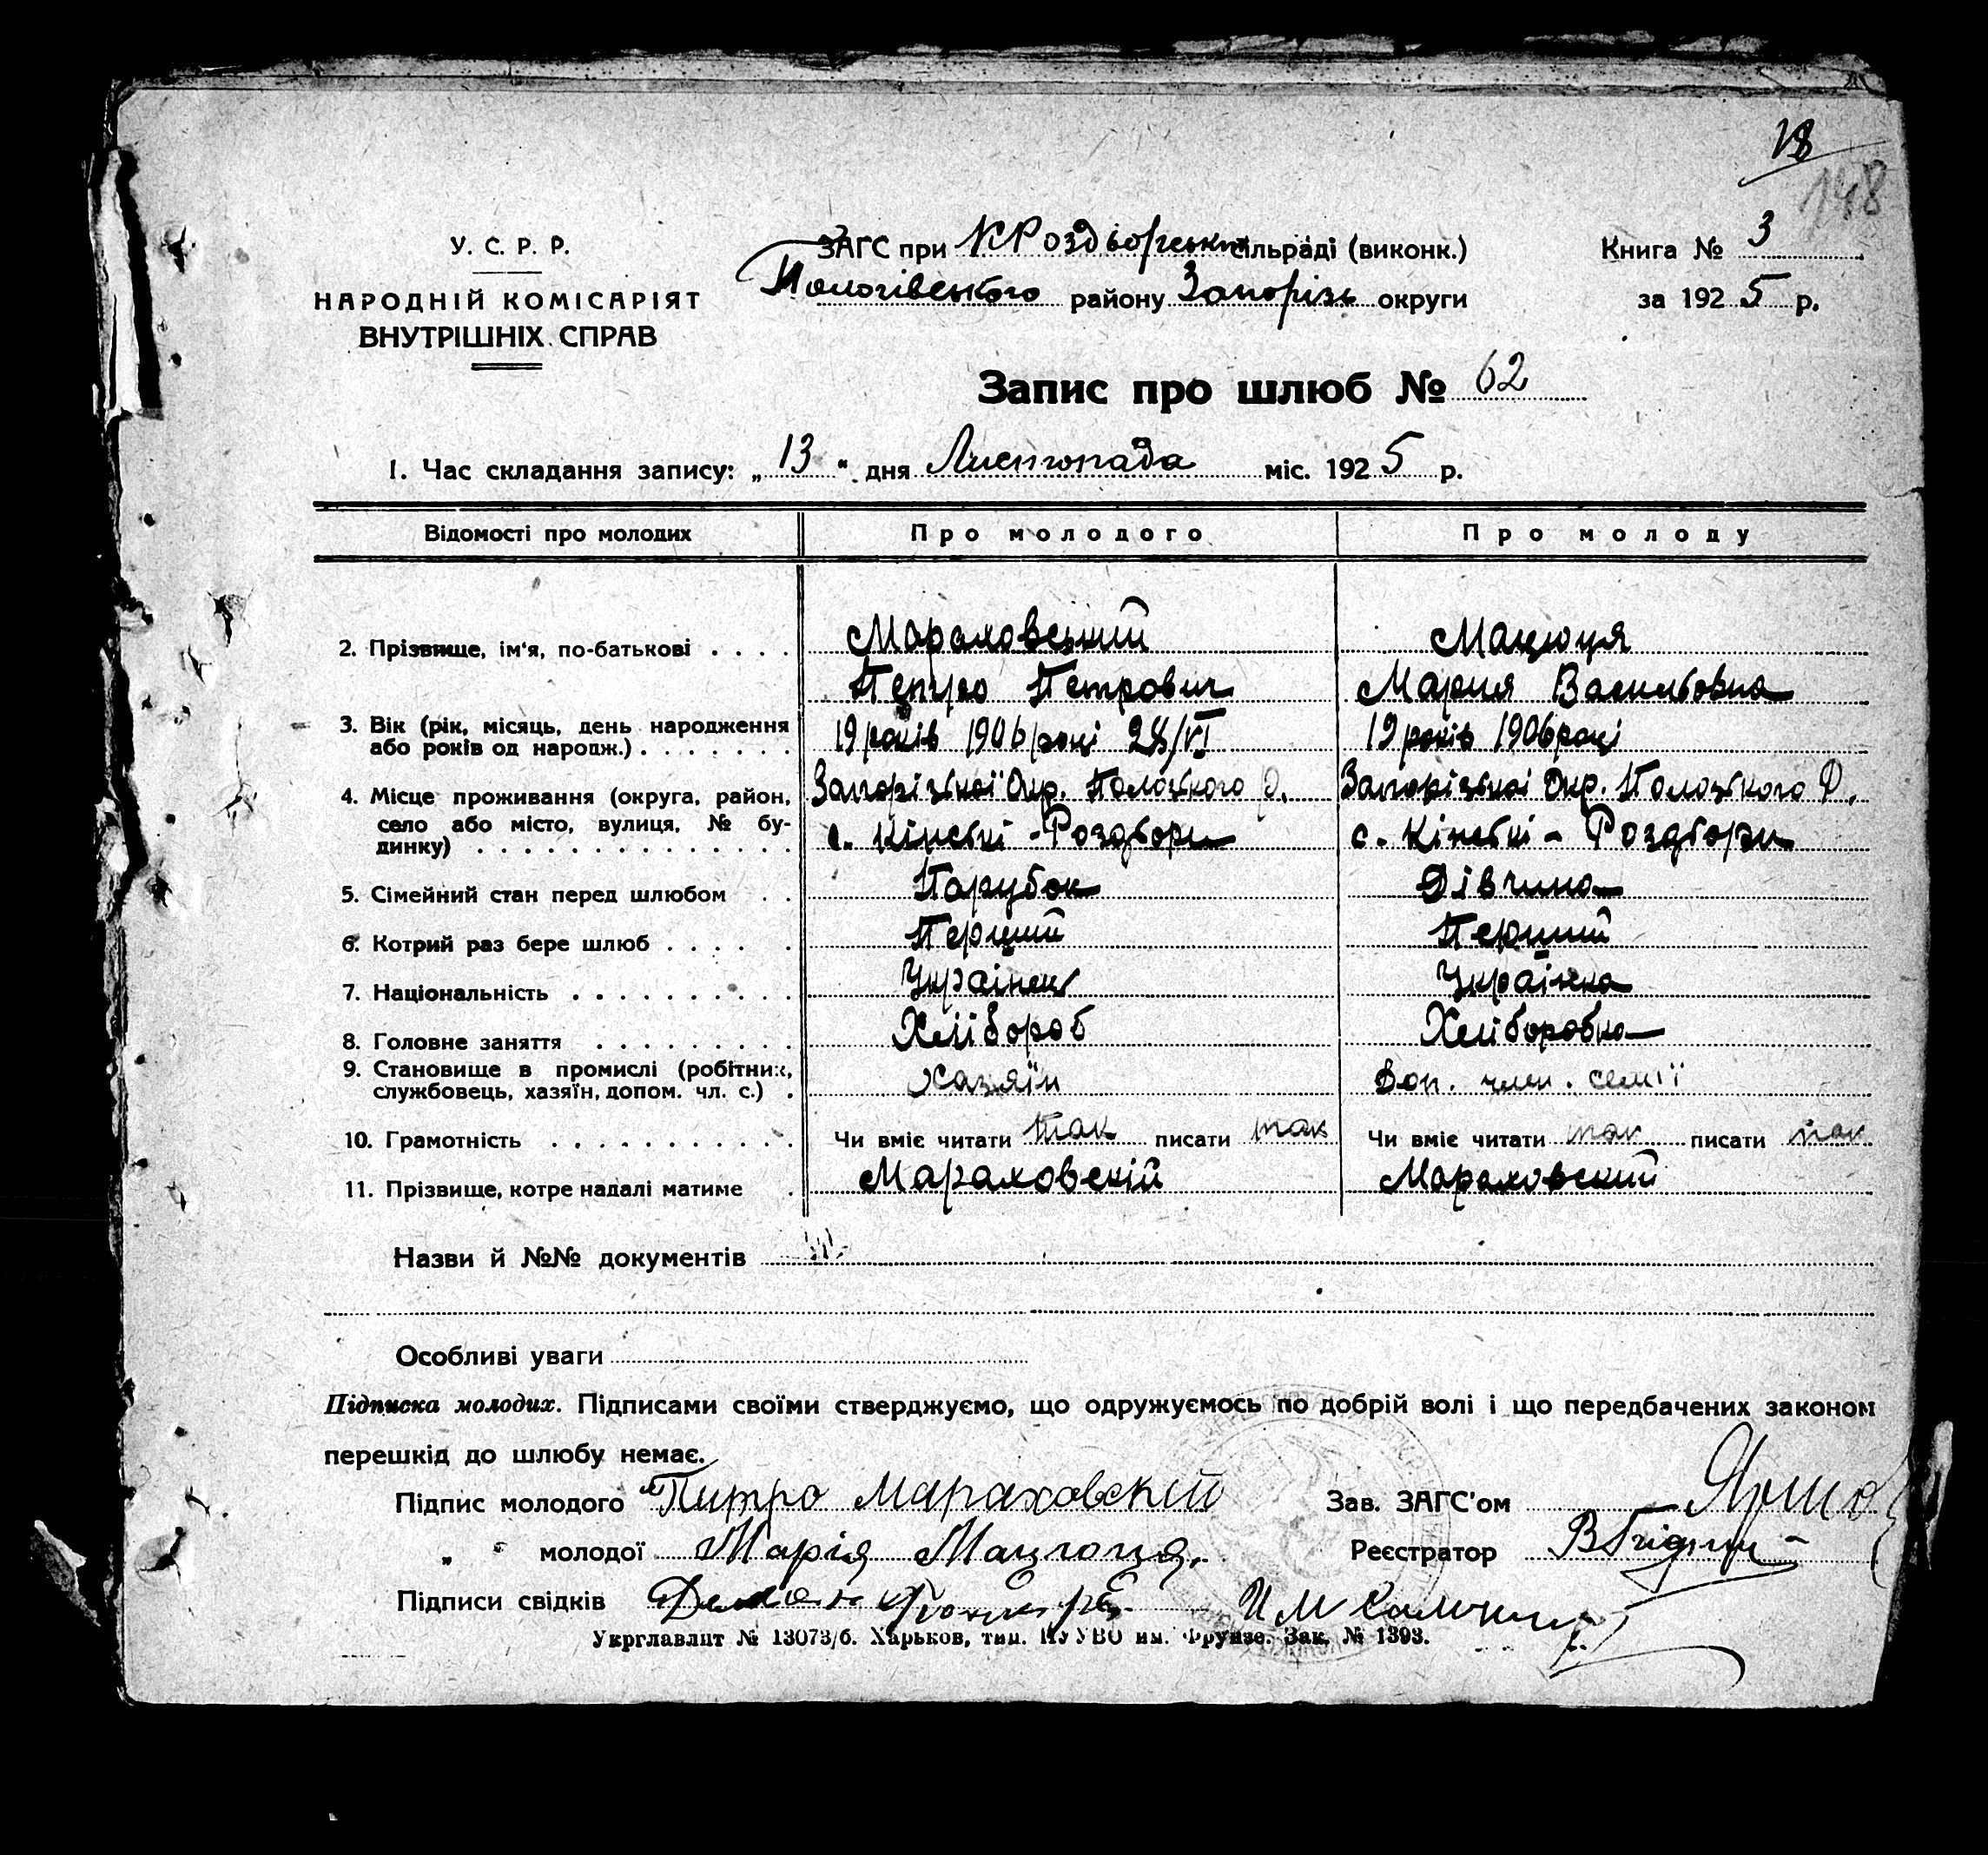 18
148
У. С. Р. Р.
НАРОДНІЙ КОМІСАРІЯТ
ВНУТРІШНІХ СПРАВ
ЗАГС при КРоздьорській сільраді (виконк.)
Пологівського району Запорізь округи
Книга № 3
за 1925 р.
Запис про шлюб № 62
1. Час складання запису: „13“ дня Листопада міс. 1925 р.
Відомості про молодих Про молодого Про молоду
2. Прізвище, ім'я, по-батькові . . . . Мараховський Мацюця
Петро Петрович Мария Васильовна
3. Вік (рік, місяць, день народження 19 років 1906 році 28/VI 19 років 1906 році
або років од народж.) . . . . . . .
4. Місце проживання (округа, район, Запорізької Окр. Полозького Р. Запорізької Окр. Полозького Р.
село або місто, вулиця, № бу-
динку) . . . . . . . . . . . . . . с. Кінські-Роздори с. Кінські-Роздори
5. Сімейний стан перед шлюбом . . Парубок Дівчина
6. Котрий раз бере шлюб . . . . . Перший Перший
7. Національність . . . . . . . . . . Українець Українка
8. Головне заняття . . . . . . . . . Хлібороб Хлiборобка
9. Становище в промислі (робітник, Хазяїн Доп. член. семії
службовець, хазяїн, допом. чл. с.) .
10. Грамотність . . . . . . . . . . . Чи вміє читати так писати так Чи вміє читати так писати так
11. Прізвище, котре надалі матиме . Мараховскій Мараховский
Назви й №№ документів
Особливі уваги
Підписка молодих. Підписами своїми стверджуємо, що одружуємось по добрій волі і що передбачених законом
перешкід до шлюбу немає.
Підпис молодого Питро Мараховскій Зав. ЗАГС'ом
„ „ молодої Марія Мацюця. Реєстратор
Підписи свідків
Укрглавліт № 13073/б. Харьков, тип. ПУУВО им. Фрунзе. Зак. № 1393.